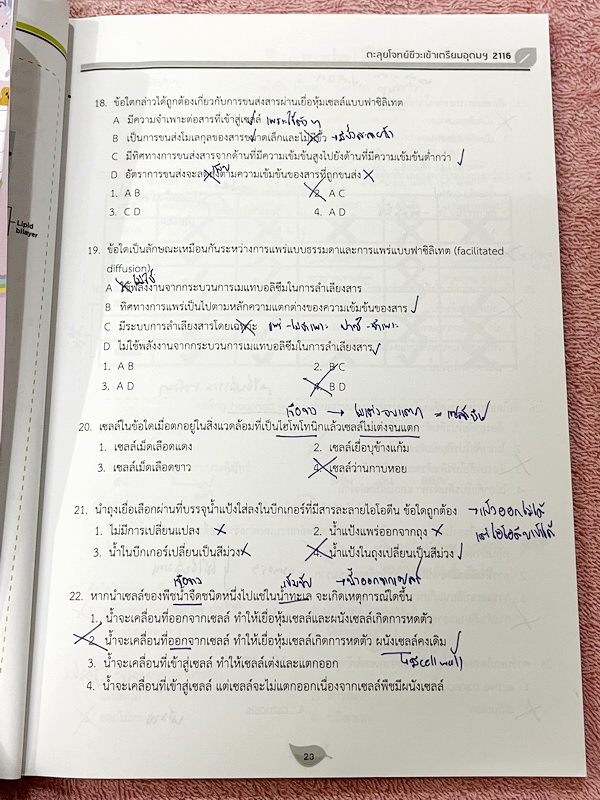 Lipid
bilayer
ตะลุยโจทย์ชีวะเข้าเตรียมอุดมฯ 2116
18. ข้อใดกล่าวได้ถูกต้องเกี่ยวกับการขนส่งสารผ่านเยื่อหุ้มเซลล์แบบฟาซิลิเทต
A มีความจำเพาะต่อสารที่เข้าสู่เซลล์
B เป็นการขนส่งโมเลกุลของสารขนาดเล็กและไม่มีขั้ว
C มีทิศทางการขนส่งสารจากด้านที่มีความเข้มข้นสูงไปยังด้านที่มีความเข้มข้นต่ำกว่า
D อัตราการขนส่งจะลดลงตามความเข้มข้นของสารที่ถูกขนส่ง
1. A B 2. A C
3. C D 4. A D
19. ข้อใดเป็นลักษณะเหมือนกันระหว่างการแพร่แบบธรรมดาและการแพร่แบบฟาซิลิเทต (facilitated
diffusion)
A ใช้พลังงานจากกระบวนการเมแทบอลิซึมในการลำเลียงสาร
B ทิศทางการแพร่เป็นไปตามหลักความแตกต่างของความเข้มข้นของสาร
C มีระบบการลำเลียงสารโดยเฉพาะ
D ไม่ใช้พลังงานจากกระบวนการเมแทบอลิซึมในการลำเลียงสาร
1. A B 2. B C
3. A D 4. B D
เจือจาง → ไม่เต่งจนแตก = เซลล์พืช
20. เซลล์ในข้อใดเมื่อตกอยู่ในสิ่งแวดล้อมที่เป็นไฮโพโทนิกแล้วเซลล์ไม่เต่งจนแตก
1. เซลล์เม็ดเลือดแดง 2. เซลล์เยื่อบุข้างแก้ม
3. เซลล์เม็ดเลือดขาว 4. เซลล์ว่านกาบหอย
21. นำถุงเยื่อเลือกผ่านที่บรรจุน้ำแป้งใส่ลงในบีกเกอร์ที่มีสารละลายไอโอดีน ข้อใดถูกต้อง → แป้งออกไม่ได้
1. ไม่มีการเปลี่ยนแปลง 2. น้ำแป้งแพร่ออกจากถุง
3. น้ำในบีกเกอร์เปลี่ยนเป็นสีม่วง 4. น้ำแป้งในถุงเปลี่ยนเป็นสีม่วง
เจือจาง เข้มข้น → น้ำออกจากเซลล์
22. หากนำเซลล์ของพืชน้ำจืดชนิดหนึ่งไปแช่ในน้ำทะเล จะเกิดเหตุการณ์ใดขึ้น
1. น้ำจะเคลื่อนที่ออกจากเซลล์ ทำให้เยื่อหุ้มเซลล์และผนังเซลล์เกิดการหดตัว
2. น้ำจะเคลื่อนที่ออกจากเซลล์ ทำให้เยื่อหุ้มเซลล์เกิดการหดตัว ผนังเซลล์คงเดิม
3. น้ำจะเคลื่อนที่เข้าสู่เซลล์ ทำให้เซลล์เต่งและแตกออก
4. น้ำจะเคลื่อนที่เข้าสู่เซลล์ แต่เซลล์จะไม่แตกออกเนื่องจากเซลล์พืชมีผนังเซลล์
23